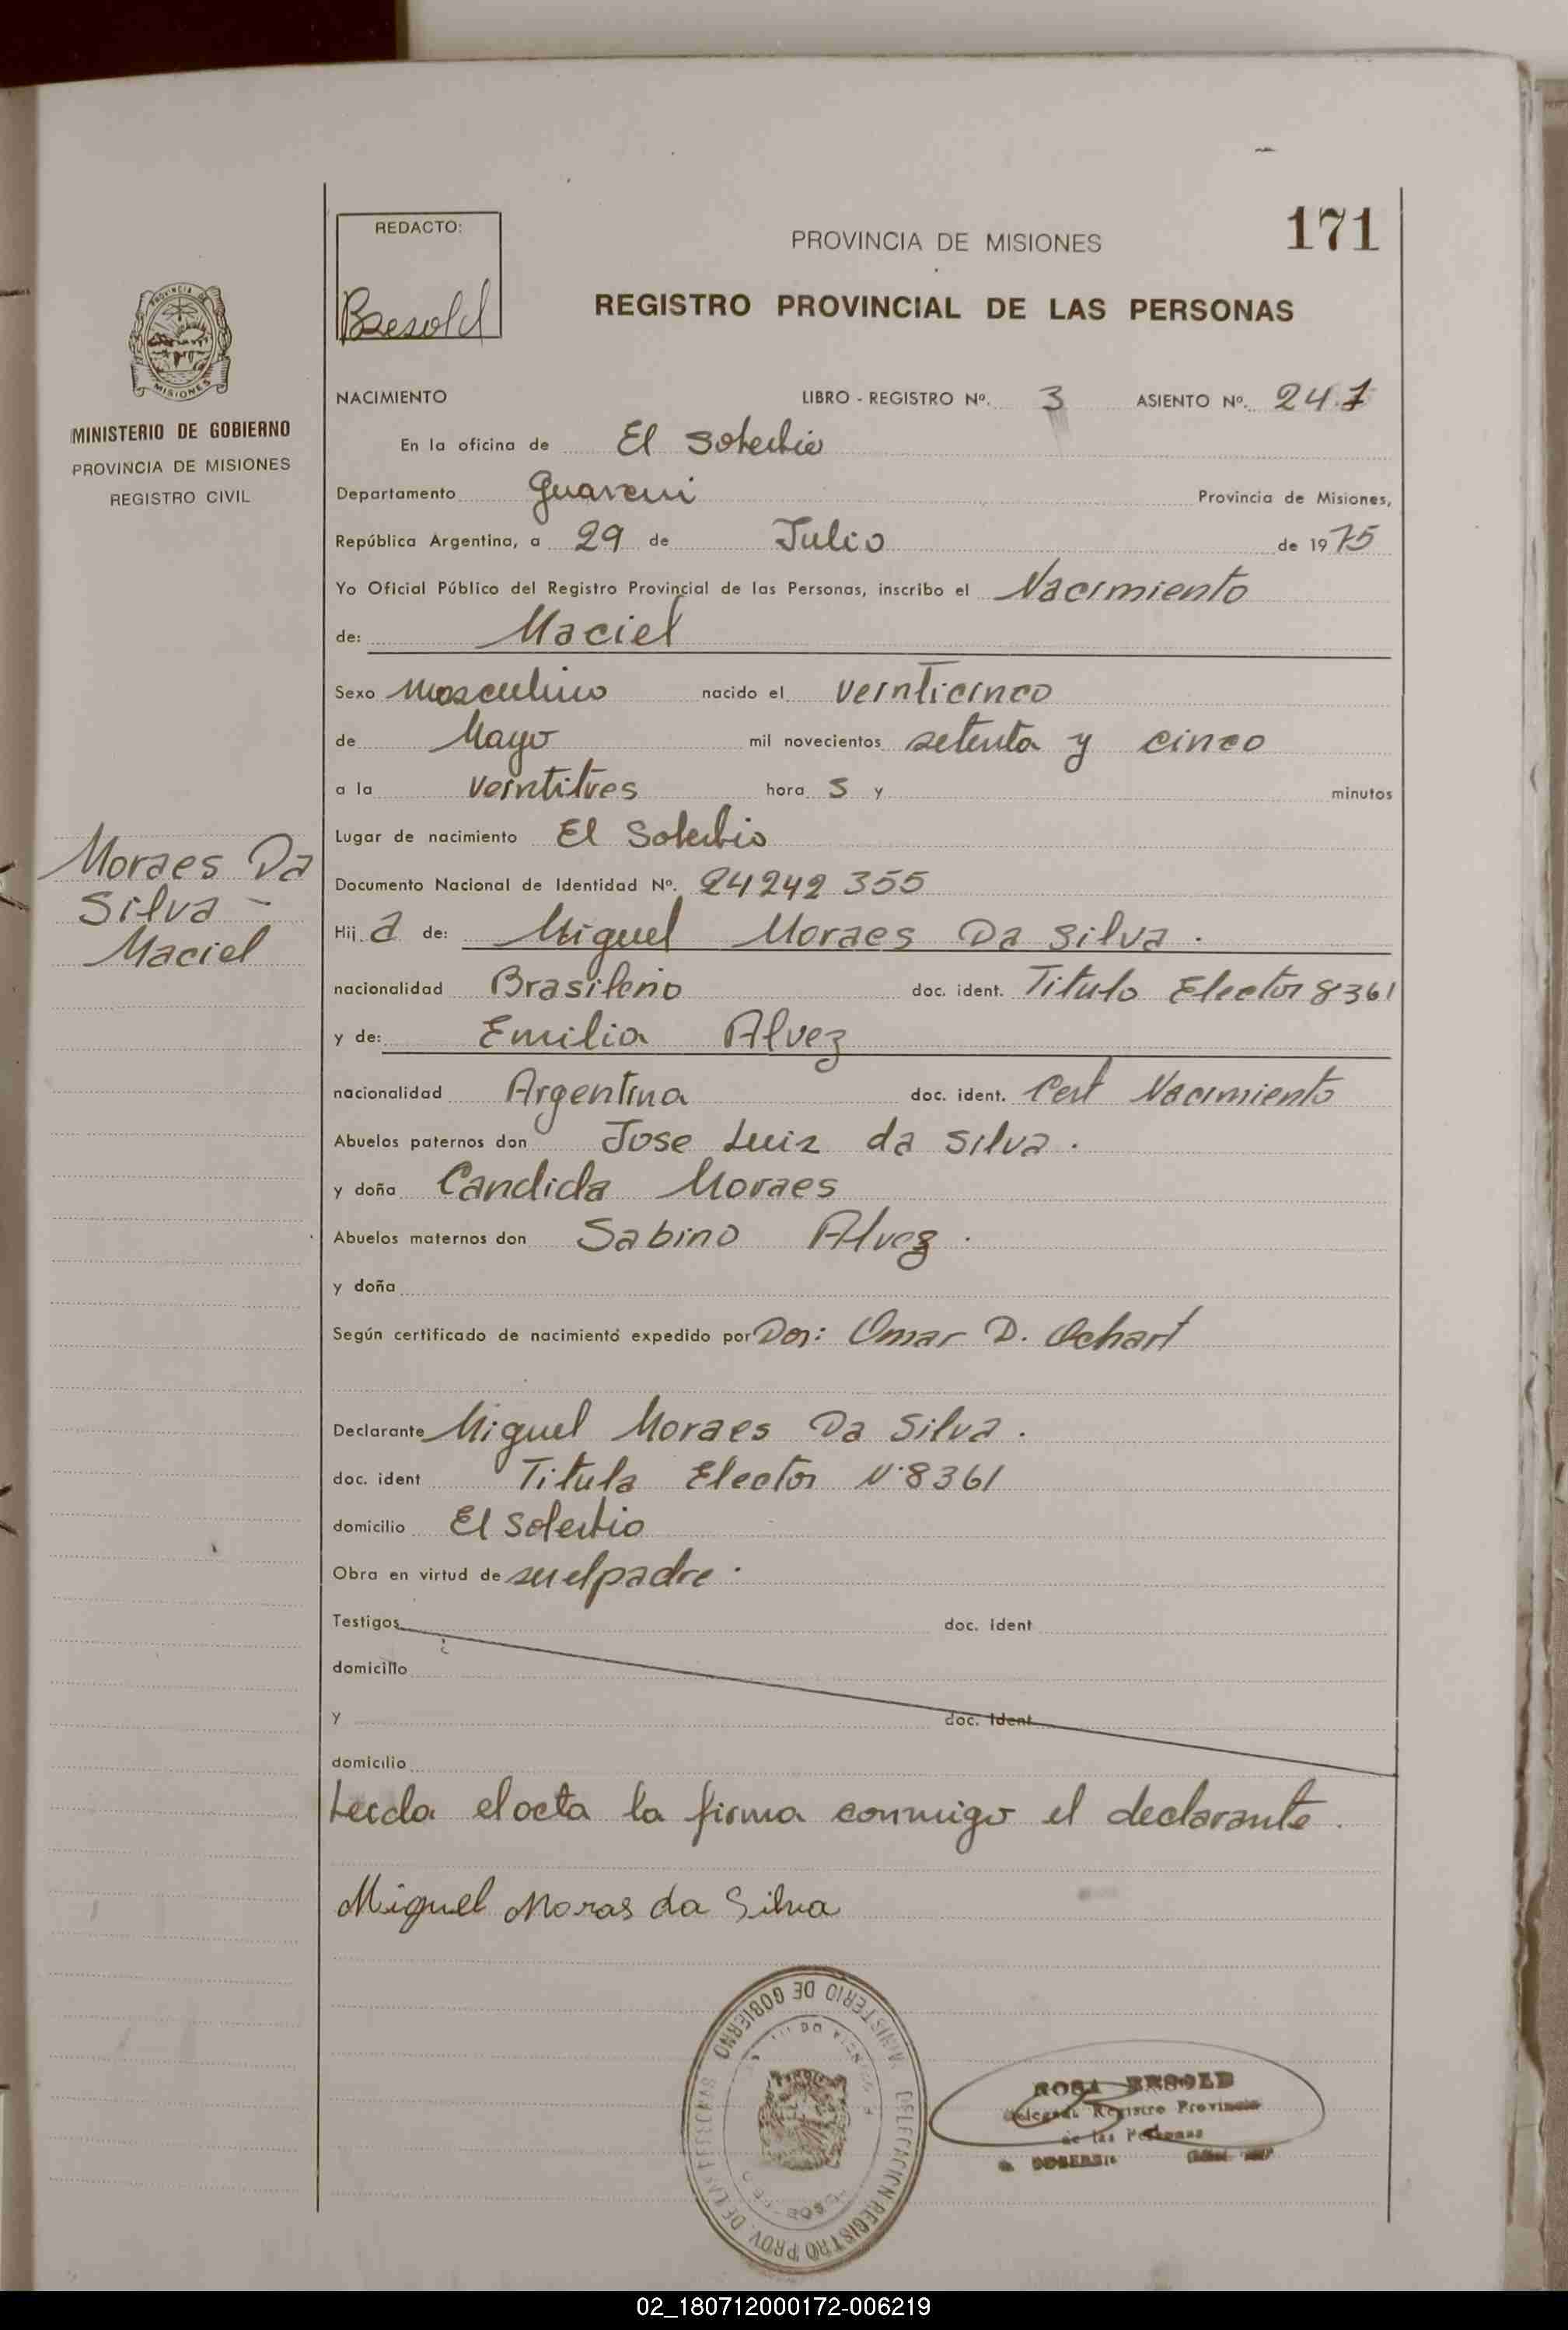 171
REDACTO:
Besold
PROVINCIA DE MISIONES
REGISTRO PROVINCIAL DE LAS PERSONAS
PROVINCIA DE
MISIONES
MINISTERIO DE GOBIERNO
PROVINCIA DE MISIONES
REGISTRO CIVIL
NACIMIENTO LIBRO - REGISTRO Nº. 3 ASIENTO Nº. 247
En la oficina de El Soberbio
Departamento Guarani Provincia de Misiones,
República Argentina, a 29 de Julio de 1975
Yo Oficial Público del Registro Provincial de las Personas, inscribo el Nacimiento
de: Maciel
Sexo Masculino nacido el veinticinco
de Mayo mil novecientos setenta y cinco
a la veintitres hora s y minutos
Lugar de nacimiento El Soberbio
Moraes Da
Silva -
Maciel
Documento Nacional de Identidad Nº. 24242355
Hij a de: Miguel Moraes Da Silva.
nacionalidad Brasileño doc. ident. Titulo Elector 8361
y de: Emilia Alvez
nacionalidad Argentina doc. ident. Cert Nacimiento
Abuelos paternos don Jose Luiz da Silva.
y doña Candida Moraes
Abuelos maternos don Sabino Alvez.
y doña
Según certificado de nacimiento expedido por Dor: Omar D. Ochart
Declarante Miguel Moraes Da Silva.
doc. ident Titula Elector N°8361
domicilio El Soberbio
Obra en virtud de ser el padre.
Testigos doc. ident
domicilio
y doc. ident
domicilio
Leida el acta la firma conmigo el declarante.
Miguel Moras da Silva
MINISTERIO DE GOBIERNO
DELEGACION REGISTRO PROV. DE LAS PERSONAS
ROSA BESOLD
Registro Provincial
de las Personas
02_180712000172-006219